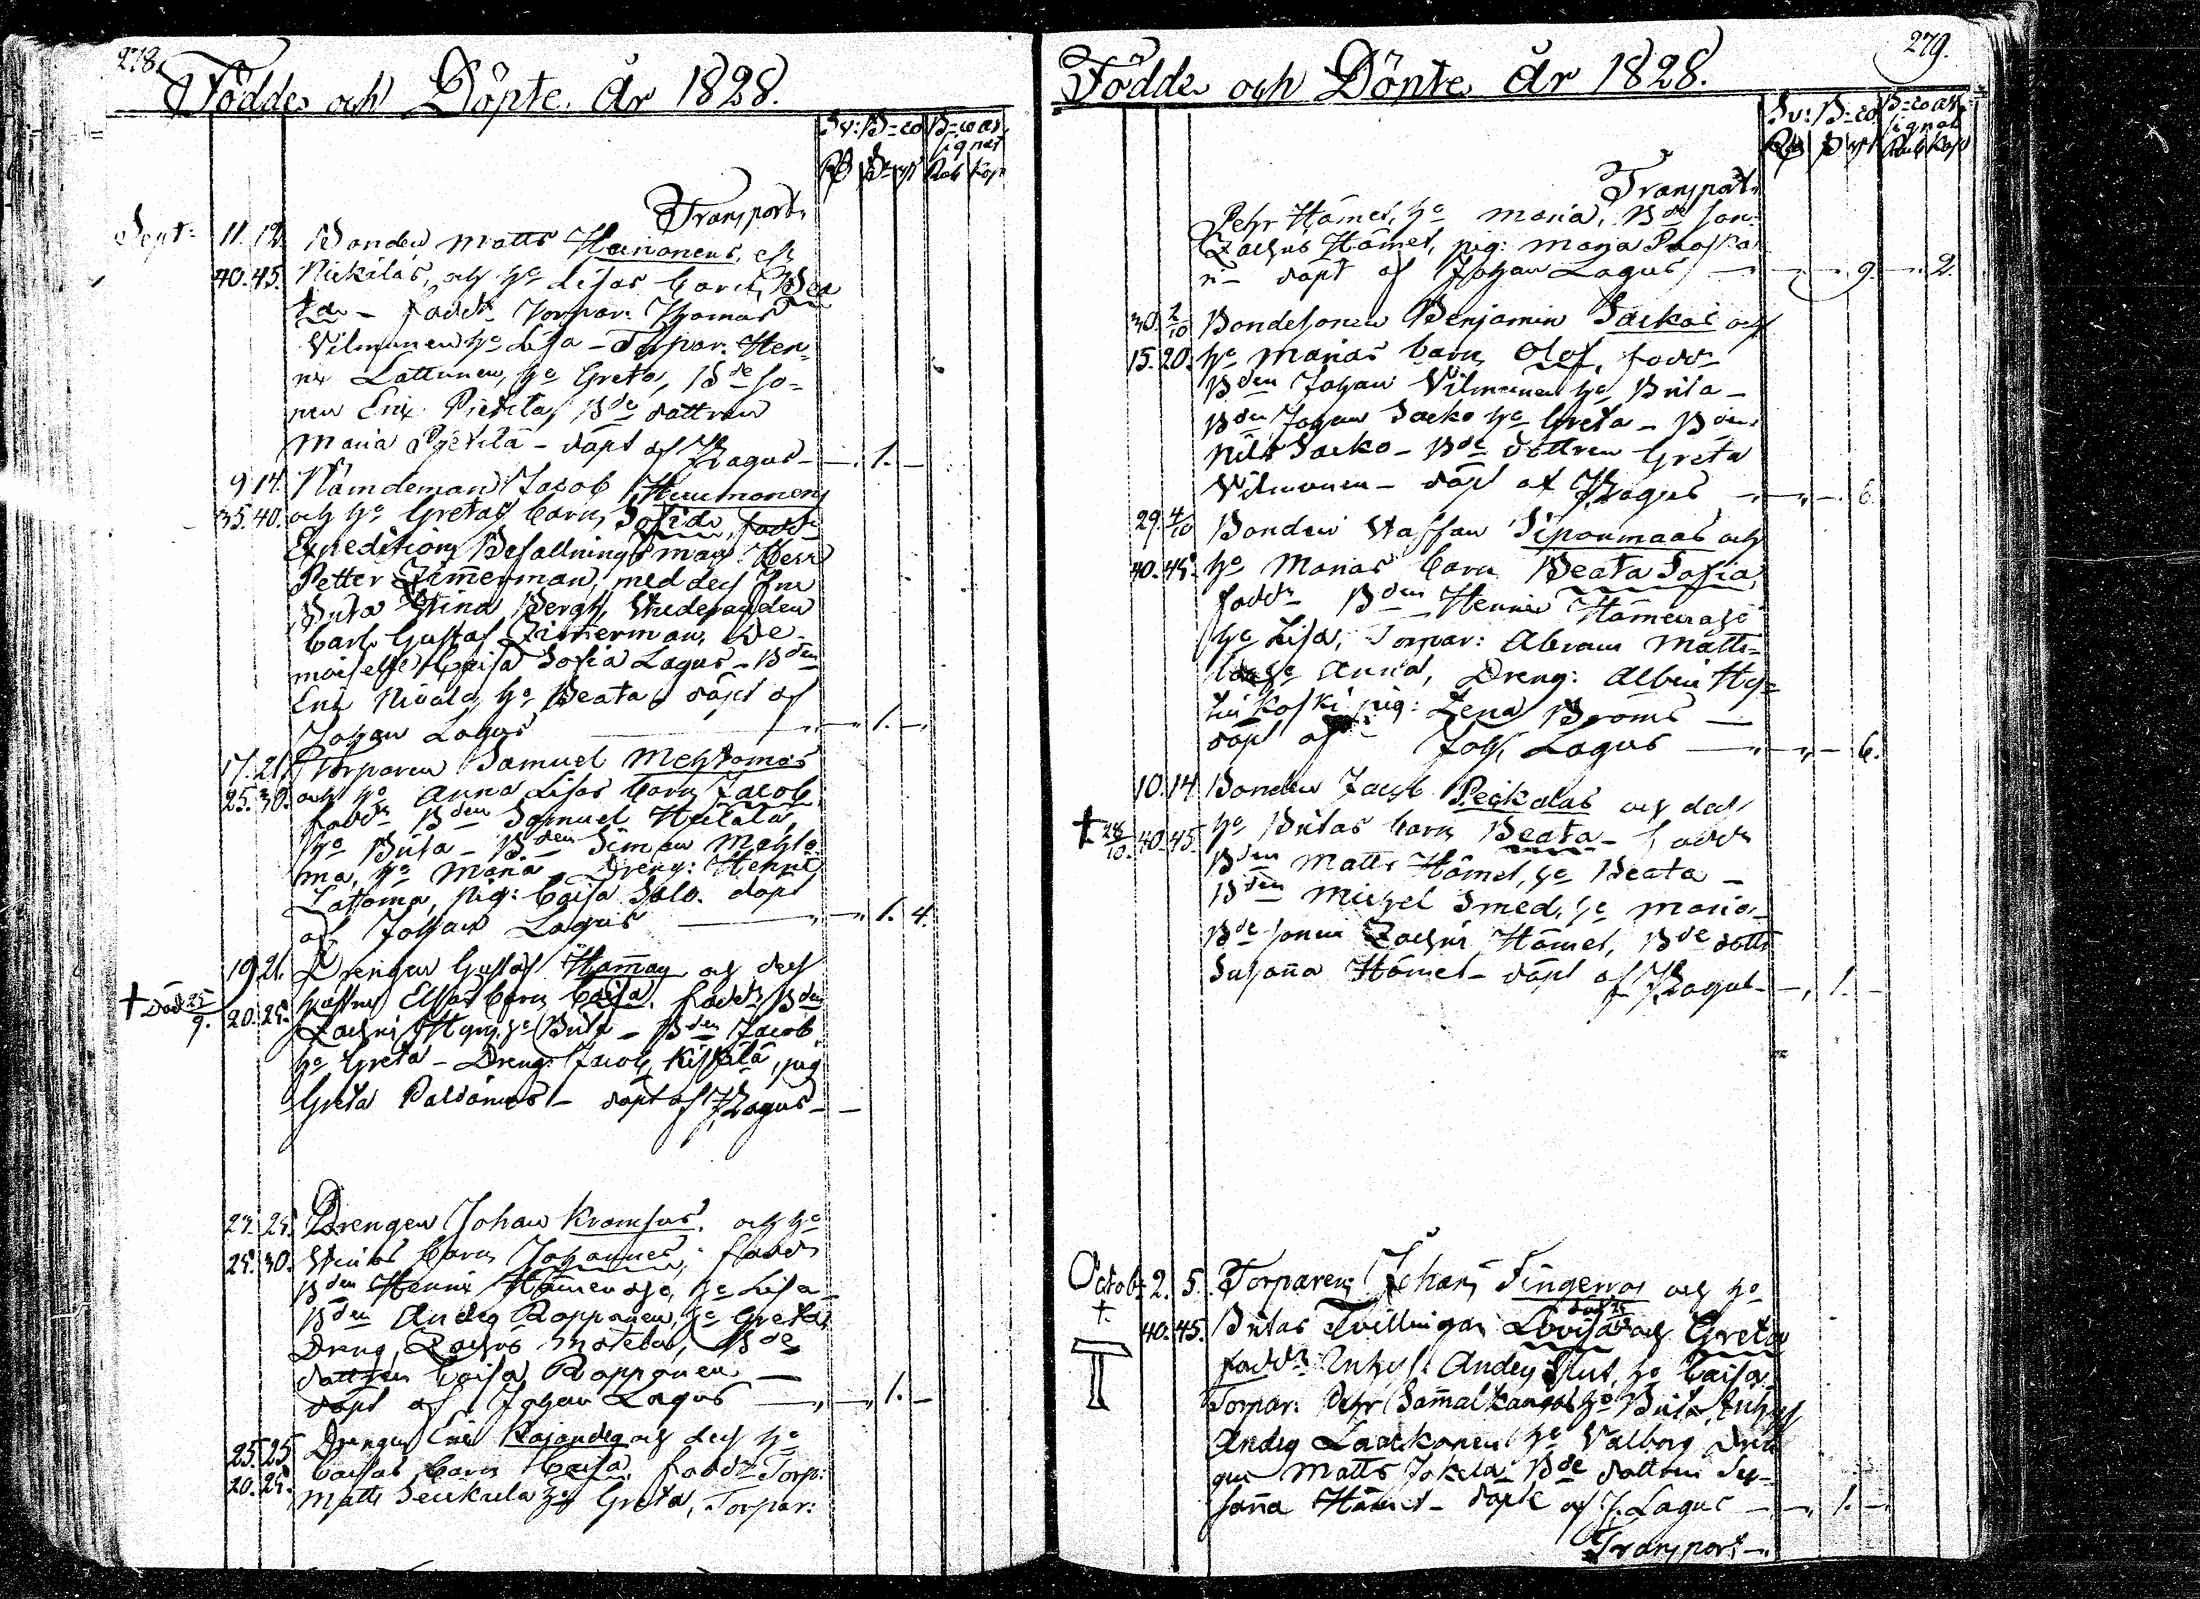 278.
Födde och Döpte År 1828.
Sv: B=co B=co as
signat
Transport
Sept: 11. 12. Bonden Matts Heinonens, och
40. 45. Niskilas, och h:o Lisas barn, Bea
ta - fadd: Torpar: Thomas
Vilmunen h:o Lisa - Torpar: Hen
rix Lattunen, h:o Greta, B:de so=
nen Eric Pietila, B:de dottren
Maria Pietilä - döpt af JLagus - 1. -
9. 14. Nämndeman Jacob Huumonens
35. 40. och h:o Gretas barn, Sofia, fadd:
Expeditions Befallningsman Herr
Petter Zimmerman, med dess Fru
Brita Stina Bergh, Studeranden
Carl Gustaf Zimmerman, De=
moiselle Caisa Sofia Lagus - B:den
Eric Nivala, h:o Beata, döpt af
Johan Lagus - 1. -
17. 21. Torparen Samuel Mehtomas
25. 30. och h:o Anna Lisas barn Jacob
fadd: B:den Samuel Heilala,
h:o Brita - B:den Simon Mehto
ma, h:o Maria - Dreng: Henric
Latoma, pig: Caisa Salo. döpt
af Johan Lagus - 1. 4.
19. 21. Drengen Gustaf Hamay och dess
† Död 25/9. 20. 25. hustrus Elsas barn, Caisa. fadd: B:den
Zachris h:o Brita - B:den Jacob,
h:o Greta - Dreng: Jacob Kiskilä, pig
Greta Paldanius - döpt af JLagus -
24. 25. Drengen Johan Kramsus. och h:o
25. 30. Stinas barn Johannes, fadd:
B:den Henric Hämenoja, h:o Lisa -
B:den Anders Ropponen, h:o Greta,
Dreng Zachris Matela, B:de
dottren Caisa Ropponen -
döpt af Johan Lagus - 1. -
25. 25. Drengen Eric Rajander och dess h:o
20. 25. Caisas barn Caisa, fadd: Torp:
Matts Seikkula h:o Greta, Torpar:
279.
Födde och Döpte År 1828.
Sv: B=co B=co as
signat
Transport
Pehr Hämet, h:o Maria, B:de son:
Zachris Hämet, pig: Maja Paaska
n - döpt af Johan Lagus - 9. - 2.
30. 2/10 Bondesonen Benjamin Sarkos och
15. 20. h:o Marias barn, Olof, fadd:
B:den Johan Vilmunen h:o Brita -
B:den Johan Sarko h:o Greta - B:den
Nils Sarko - B:de dottren Greta
Vilmunen - döpt af JLagus - 6.
29. 4/10 Bonden Staffan Siponmaas och
40. 45. h:o Marias barn Beata Sofia,
fadd: B:den Henric Hämenoja
h:o Lisa, Torpar: Abram Matts=
h:o Anna, Dreng: Albin Hy=
koski, pig: Lena Broms -
döpt af Joh: Lagus - 6.
10. 14. Bonden Jacob Peckalas och dess
† 28/10. 40. 45. h:o Britas barn Beata - fadd:
B:den Matts Hämet, h:o Beata -
B:den Michel Smed, h:o Maria -
B:de sonen Zachris Hämet, B:de dottr
Susanna Hämet - döpt af JLagus - 1. -
Octob: 2. 5. Torparen Johan Fingerros och h:o
† 40. 45. Britas Tvillingar Lovisa och Greta
fadd: Inhys: Anders Slut, h:o Caisa
Torpar: Pehr Sammalkangas h:o Brita, Inhys
Anders Laackonen h:o Valborg Drän
gen Matts Jokela B:de dottren Su=
sanna Hämet - döpte af J. Lagus - 1. -
Transport -